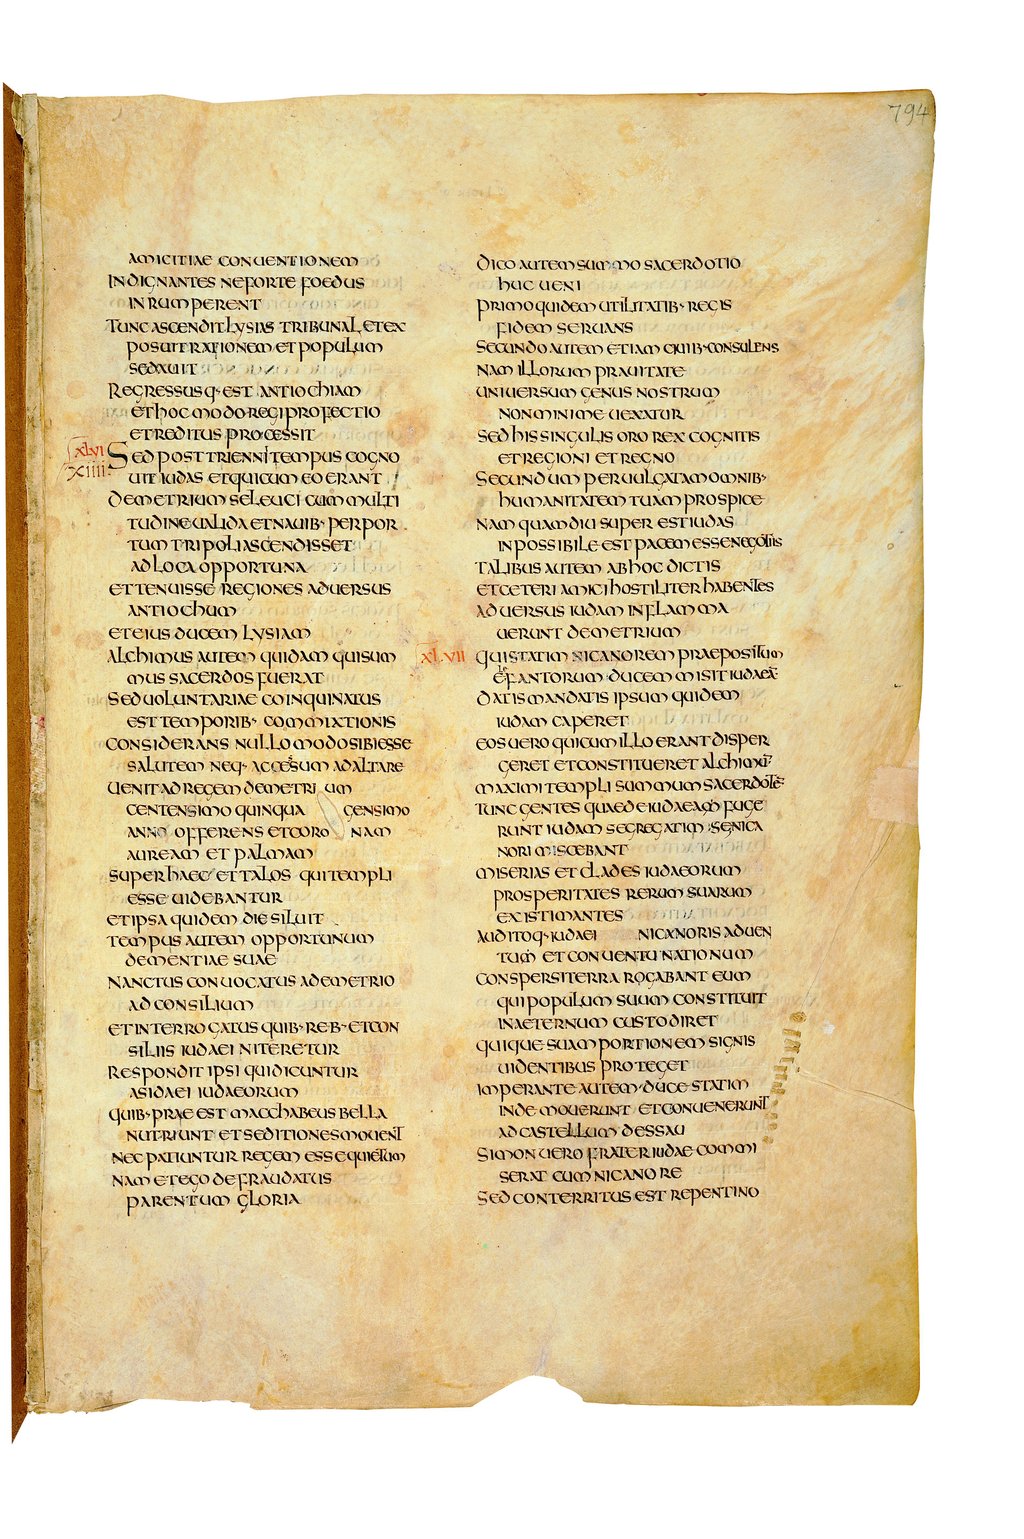 794
AMICITIAE CONUENTIONEM
INDIGNANTES NEFORTE FOEDUS
INRUMPERENT
TUNC ASCENDIT LYSIAS TRIBUNAL ET EX
POSUIT RATIONEM ET POPULUM
SEDAUIT
REGRESSUSQ· EST ANTIOCHIAM
ET HOC MODO REGI PROFECTIO
ET REDITUS PROCESSIT
XLVI
XIIII
SED POST TRIENNI TEMPUS COGNO
UIT IUDAS ET QUI CUM EO ERANT
DEMETRIUM SELEUCI CUM MULTI
TUDINE UALIDA ET NAUIB· PER POR
TUM TRIPOLI ASCENDISSET
AD LOCA OPPORTUNA
ET TENUISSE REGIONES ADUERSUS
ANTIOCHUM
ET EIUS DUCEM LYSIAM
ALCHIMUS AUTEM QUIDAM QUI SUM
MUS SACERDOS FUERAT
SED UOLUNTARIAE COINQUINATUS
EST TEMPORIB· COMMIXTIONIS
CONSIDERANS NULLO MODO SIBI ESSE
SALUTEM NEQ· ACCESSUM AD ALTARE
UENIT AD REGEM DEMETRIUM
CENTENSIMO QUINQUAGENSIMO
ANNO OFFERENS ET CORONAM
AUREAM ET PALMAM
SUPER HAEC ET TALOS QUI TEMPLI
ESSE UIDEBANTUR
ET IPSA QUIDEM DIE SILUIT
TEMPUS AUTEM OPPORTUNUM
DEMENTIAE SUAE
NANCTUS CONUOCATUS A DEMETRIO
AD CONSILIUM
ET INTERROGATUS QUIB· REB· ET CON
SILIIS IUDAEI NITERETUR
RESPONDIT IPSI QUI DICUNTUR
ASIDAEI IUDAEORUM
QUIB· PRAEEST MACCHABEUS BELLA
NUTRIUNT ET SEDITIONES MOUENT
NEC PATIUNTUR REGEM ESSE QUIETUM
NAM ET EGO DEFRAUDATUS
PARENTUM GLORIA
DICO AUTEM SUMMO SACERDOTIO
HUC UENI
PRIMO QUIDEM UTILITATIB· REGIS
FIDEM SERUANS
SECUNDO AUTEM ETIAM CIUIB· CONSULENS
NAM ILLORUM PRAUITATE
UNIUERSUM GENUS NOSTRUM
NON MINIME UEXATUR
SED HIS SINGULIS ORO REX COGNITIS
ET REGIONI ET REGNO
SECUNDUM PERUULGATAM OMNIB·
HUMANITATEM TUAM PROSPICE
NAM QUAMDIU SUPEREST IUDAS
INPOSSIBILE EST PACEM ESSE NEGOTIIS
TALIBUS AUTEM AB HOC DICTIS
ET CETERI AMICI HOSTILITER HABENTES
ADUERSUS IUDAM INFLAMMA
UERUNT DEMETRIUM
XLVII
QUI STATIM NICANOREM PRAEPOSITUM
ELEFANTORUM DUCEM MISIT IUDAEA
DATIS MANDATIS IPSUM QUIDEM
IUDAM CAPERET
EOS UERO QUI CUM ILLO ERANT DISPER
GERET ET CONSTITUERET ALCHIMU
MAXIMI TEMPLI SUMMUM SACERDOTE
TUNC GENTES QUAE DE IUDAEA FUGE
RUNT IUDAM SEGREGATIM SE NICA
NORI MISCEBANT
MISERIAS ET CLADES IUDAEORUM
PROSPERITATES RERUM SUARUM
EXISTIMANTES
AUDITOQ· IUDAEI NICANORIS ADUEN
TUM ET CONUENTU NATIONUM
CONSPERSI TERRA ROGABANT EUM
QUI POPULUM SUUM CONSTITUIT
IN AETERNUM CUSTODIRET
QUIQUE SUAM PORTIONEM SIGNIS
UIDENTIBUS PROTEGET
IMPERANTE AUTEM DUCE STATIM
INDE MOUERUNT ET CONUENERUNT
AD CASTELLUM DESSAU
SIMON UERO FRATER IUDAE COMMI
SERAT CUM NICANORE
SED CONTERRITUS EST REPENTINO